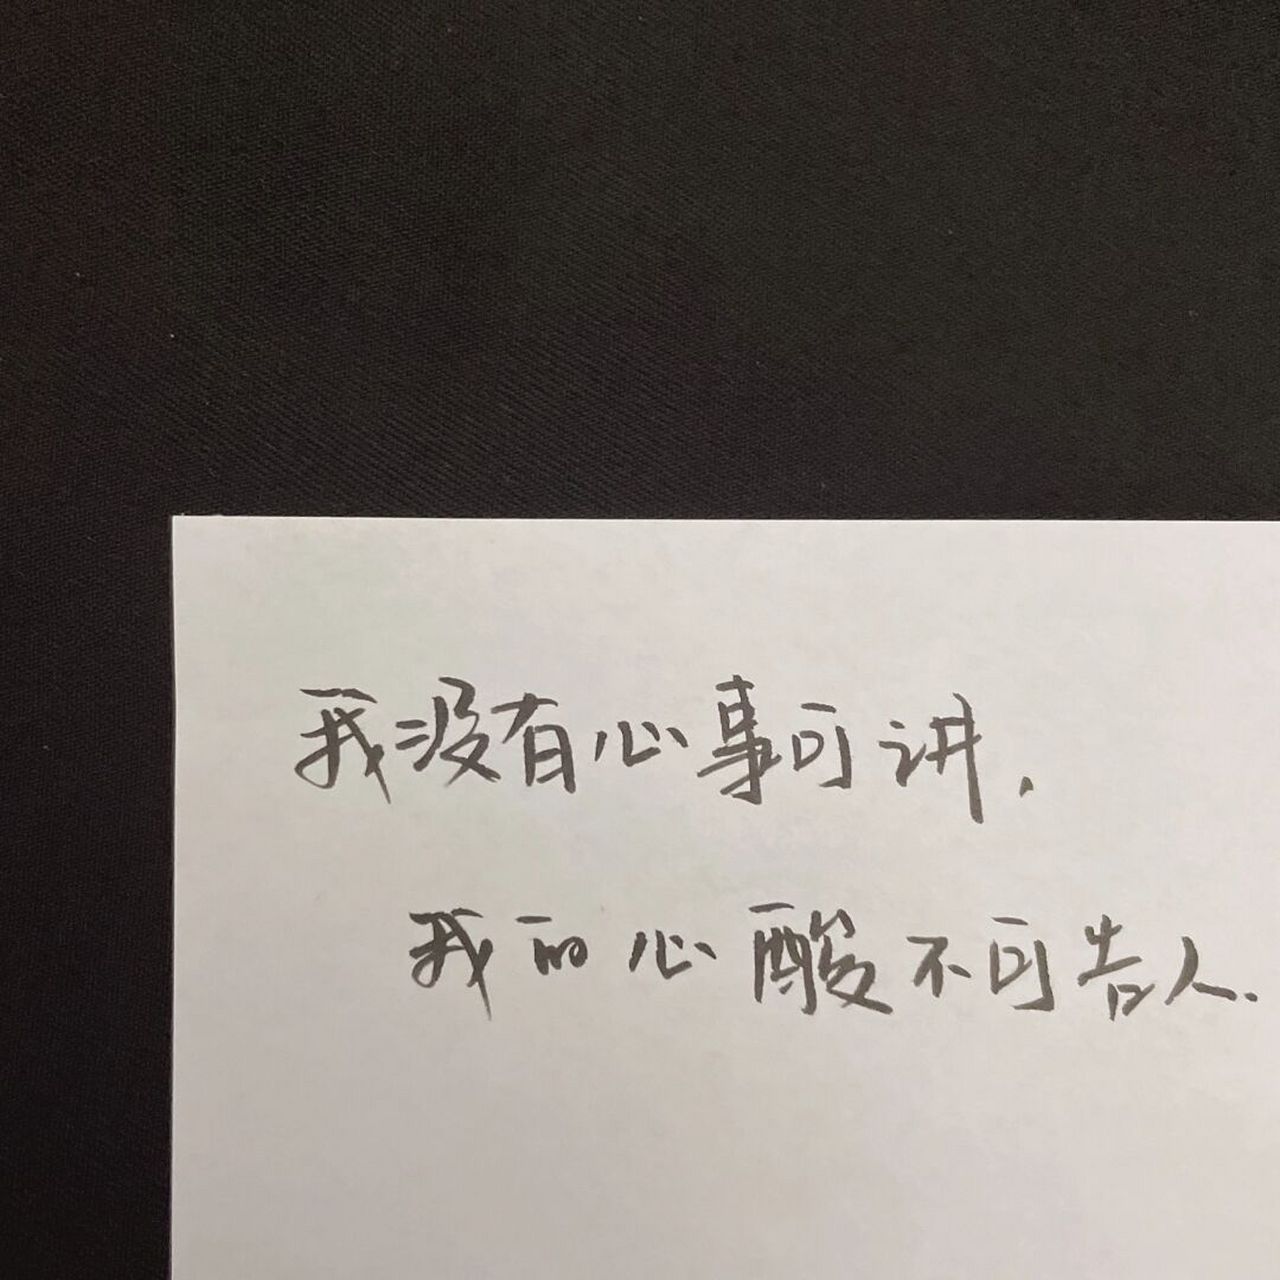 我没有心事可讲.
我的心酸不可告人.